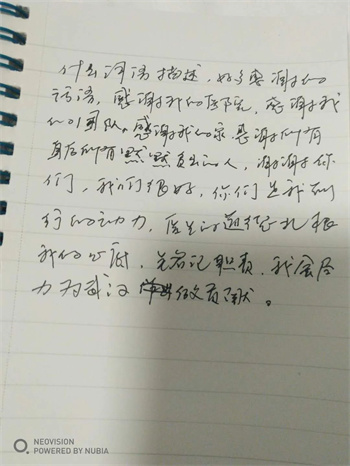 什么词语描述，好多感谢的
话语，感谢我的医院，感谢我
们的团队。感谢我的家，感谢所有
背后所有默默支出的人，谢谢你
们，我们很好，你们是我们前
行的动力，医生的道德扎根
我的心底，先铭记职责，我会尽
力为武汉做贡献。
NEOVISION
POWERED BY NUBIA